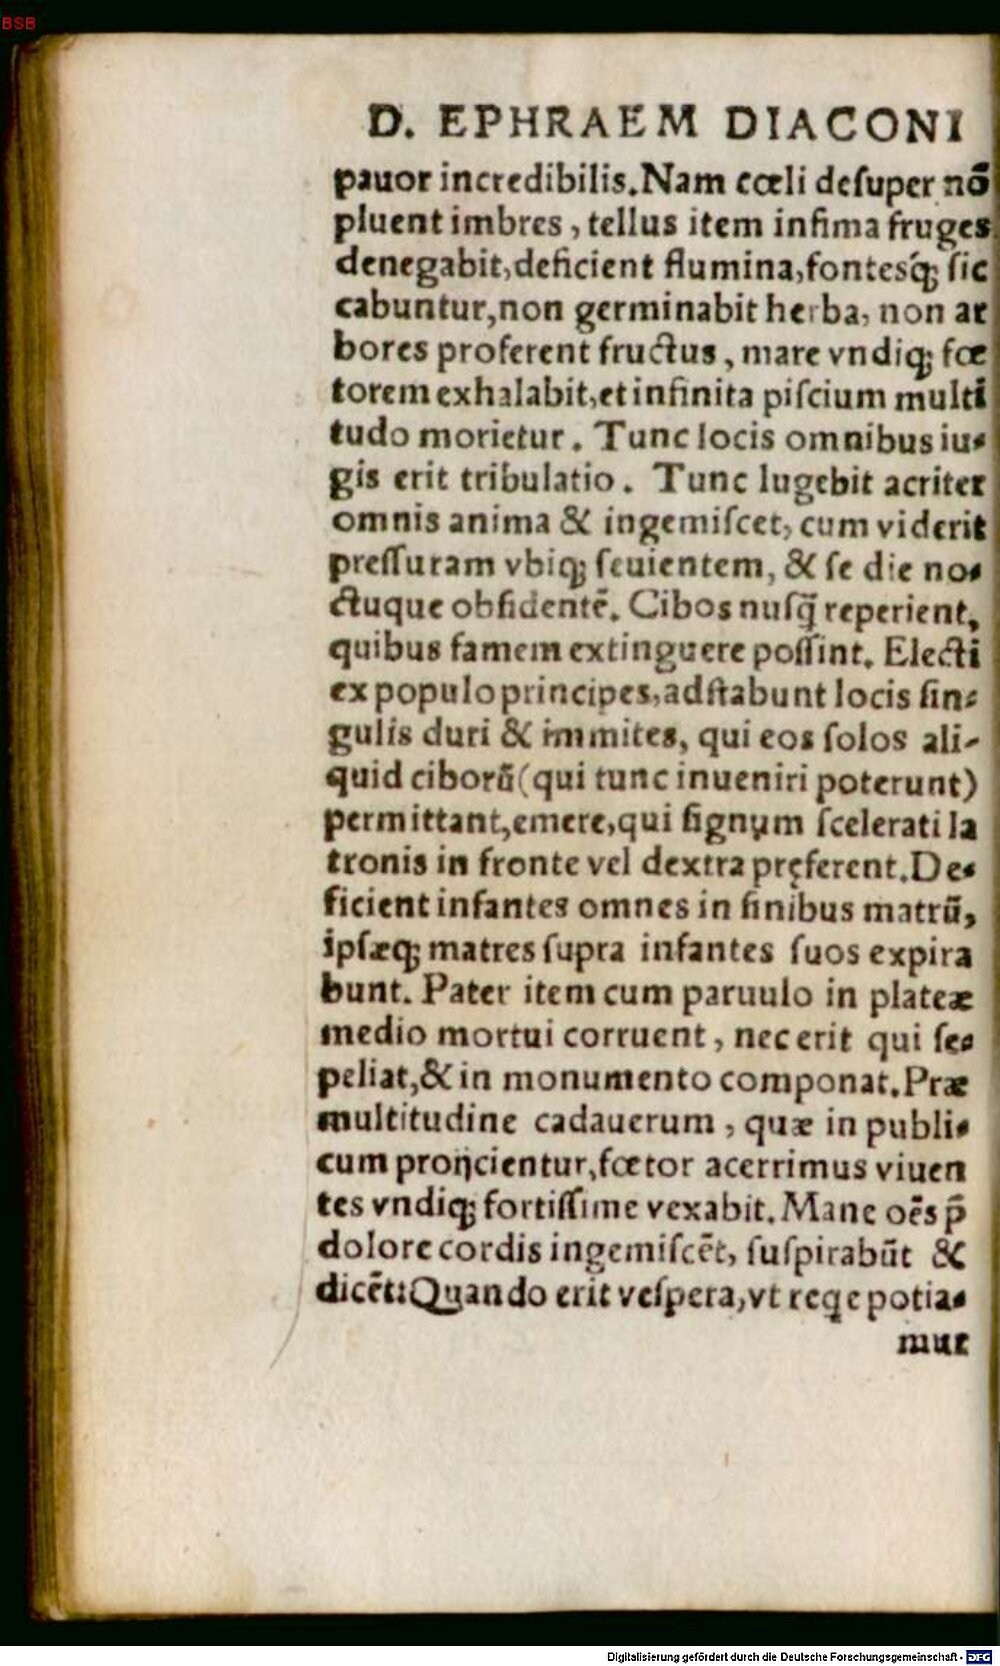 BSB
D. EPHRAEM DIACONI
pauor incredibilis. Nam cœli deſuper nõ
pluent imbres, tellus item infima fruges
denegabit, deficient flumina, fontesq́ꝫ ſic
cabuntur, non germinabit herba, non ar
bores proferent fructus, mare vndiqꝫ fœ
torem exhalabit, et infinita piſcium multi
tudo morietur. Tunc locis omnibus iu-
gis erit tribulatio. Tunc lugebit acriter
omnis anima & ingemiſcet, cum viderit
preſſuram vbiqꝫ ſeuientem, & ſe die no-
ctuque obſidentē. Cibos nuſq̃ reperient,
quibus famem extinguere poſſint. Electi
ex populo principes, adſtabunt locis ſin-
gulis duri & immites, qui eos ſolos ali-
quid ciborũ (qui tunc inueniri poterunt)
permittant, emere, qui ſignum ſcelerati la
tronis in fronte vel dextra pręferent. De-
ficient infantes omnes in ſinibus matrũ,
ipſæqꝫ matres ſupra infantes ſuos expira
bunt. Pater item cum paruulo in plateæ
medio mortui corruent, nec erit qui ſe-
peliat, & in monumento componat. Præ
multitudine cadauerum, quæ in publi-
cum proijcientur, fœtor acerrimus viuen
tes vndiqꝫ fortiſſime vexabit. Mane oēs p̄
dolore cordis ingemiſcēt, ſuſpirabũt &
dicēt: Quando erit veſpera, vt reqe potia-
mur
Digitalisierung gefördert durch die Deutsche Forschungsgemeinschaft - DFG